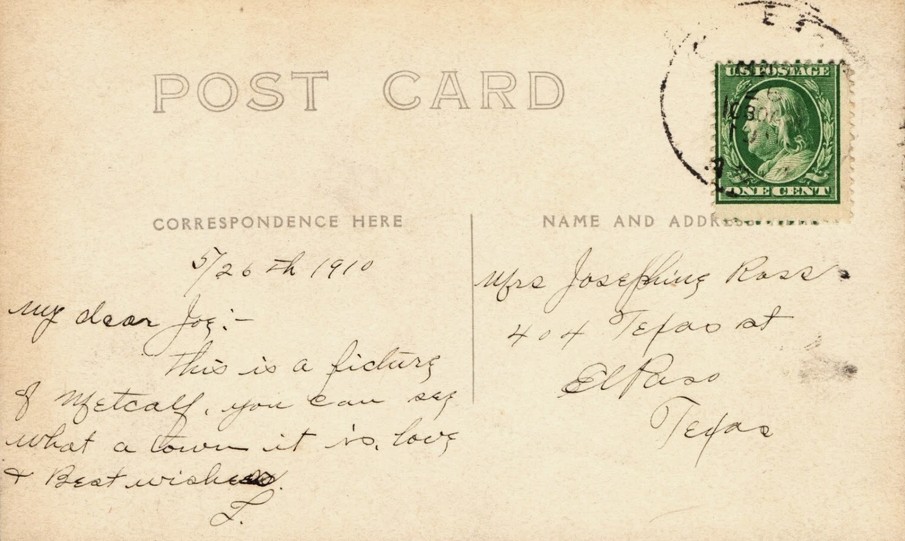 POST CARD
U.S. POSTAGE
ONE CENT
CORRESPONDENCE HERE
NAME AND ADDRESS
5/26th 1910
My dear Joe:-
This is a picture
of Metcalf, you can see
what a town it is. love
& Best wishes.
L.
Mrs Josephine Ross
404 Texas st
El Paso
Texas